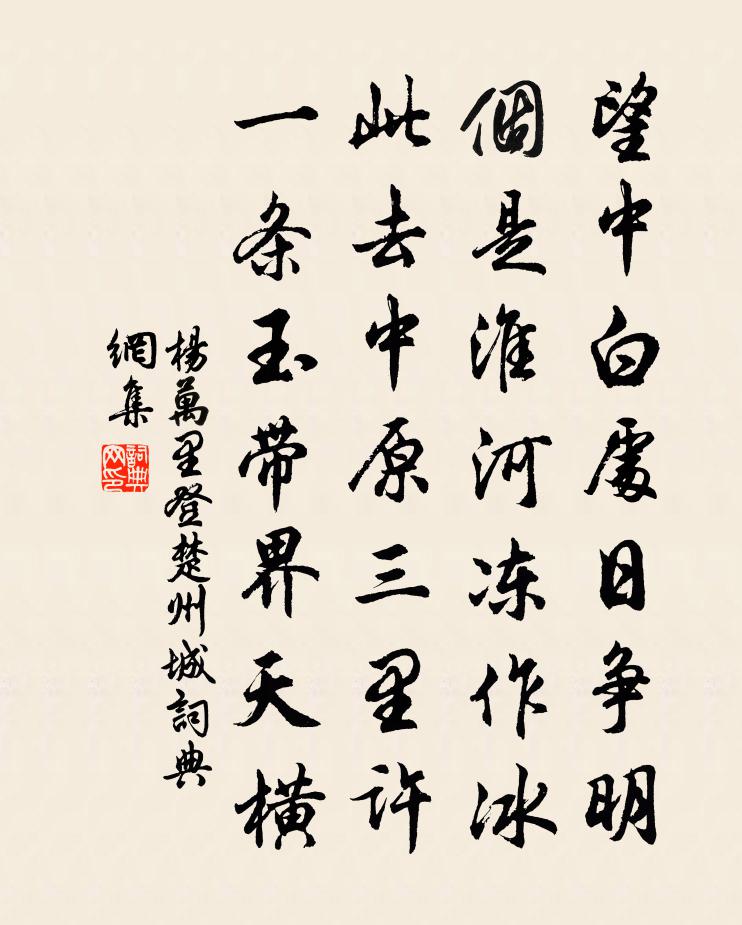 望中白處日争明
個是淮河冻作冰
此去中原三里许
一条玉带界天横
楊萬里登楚州城詞典
網集
詞典
网印